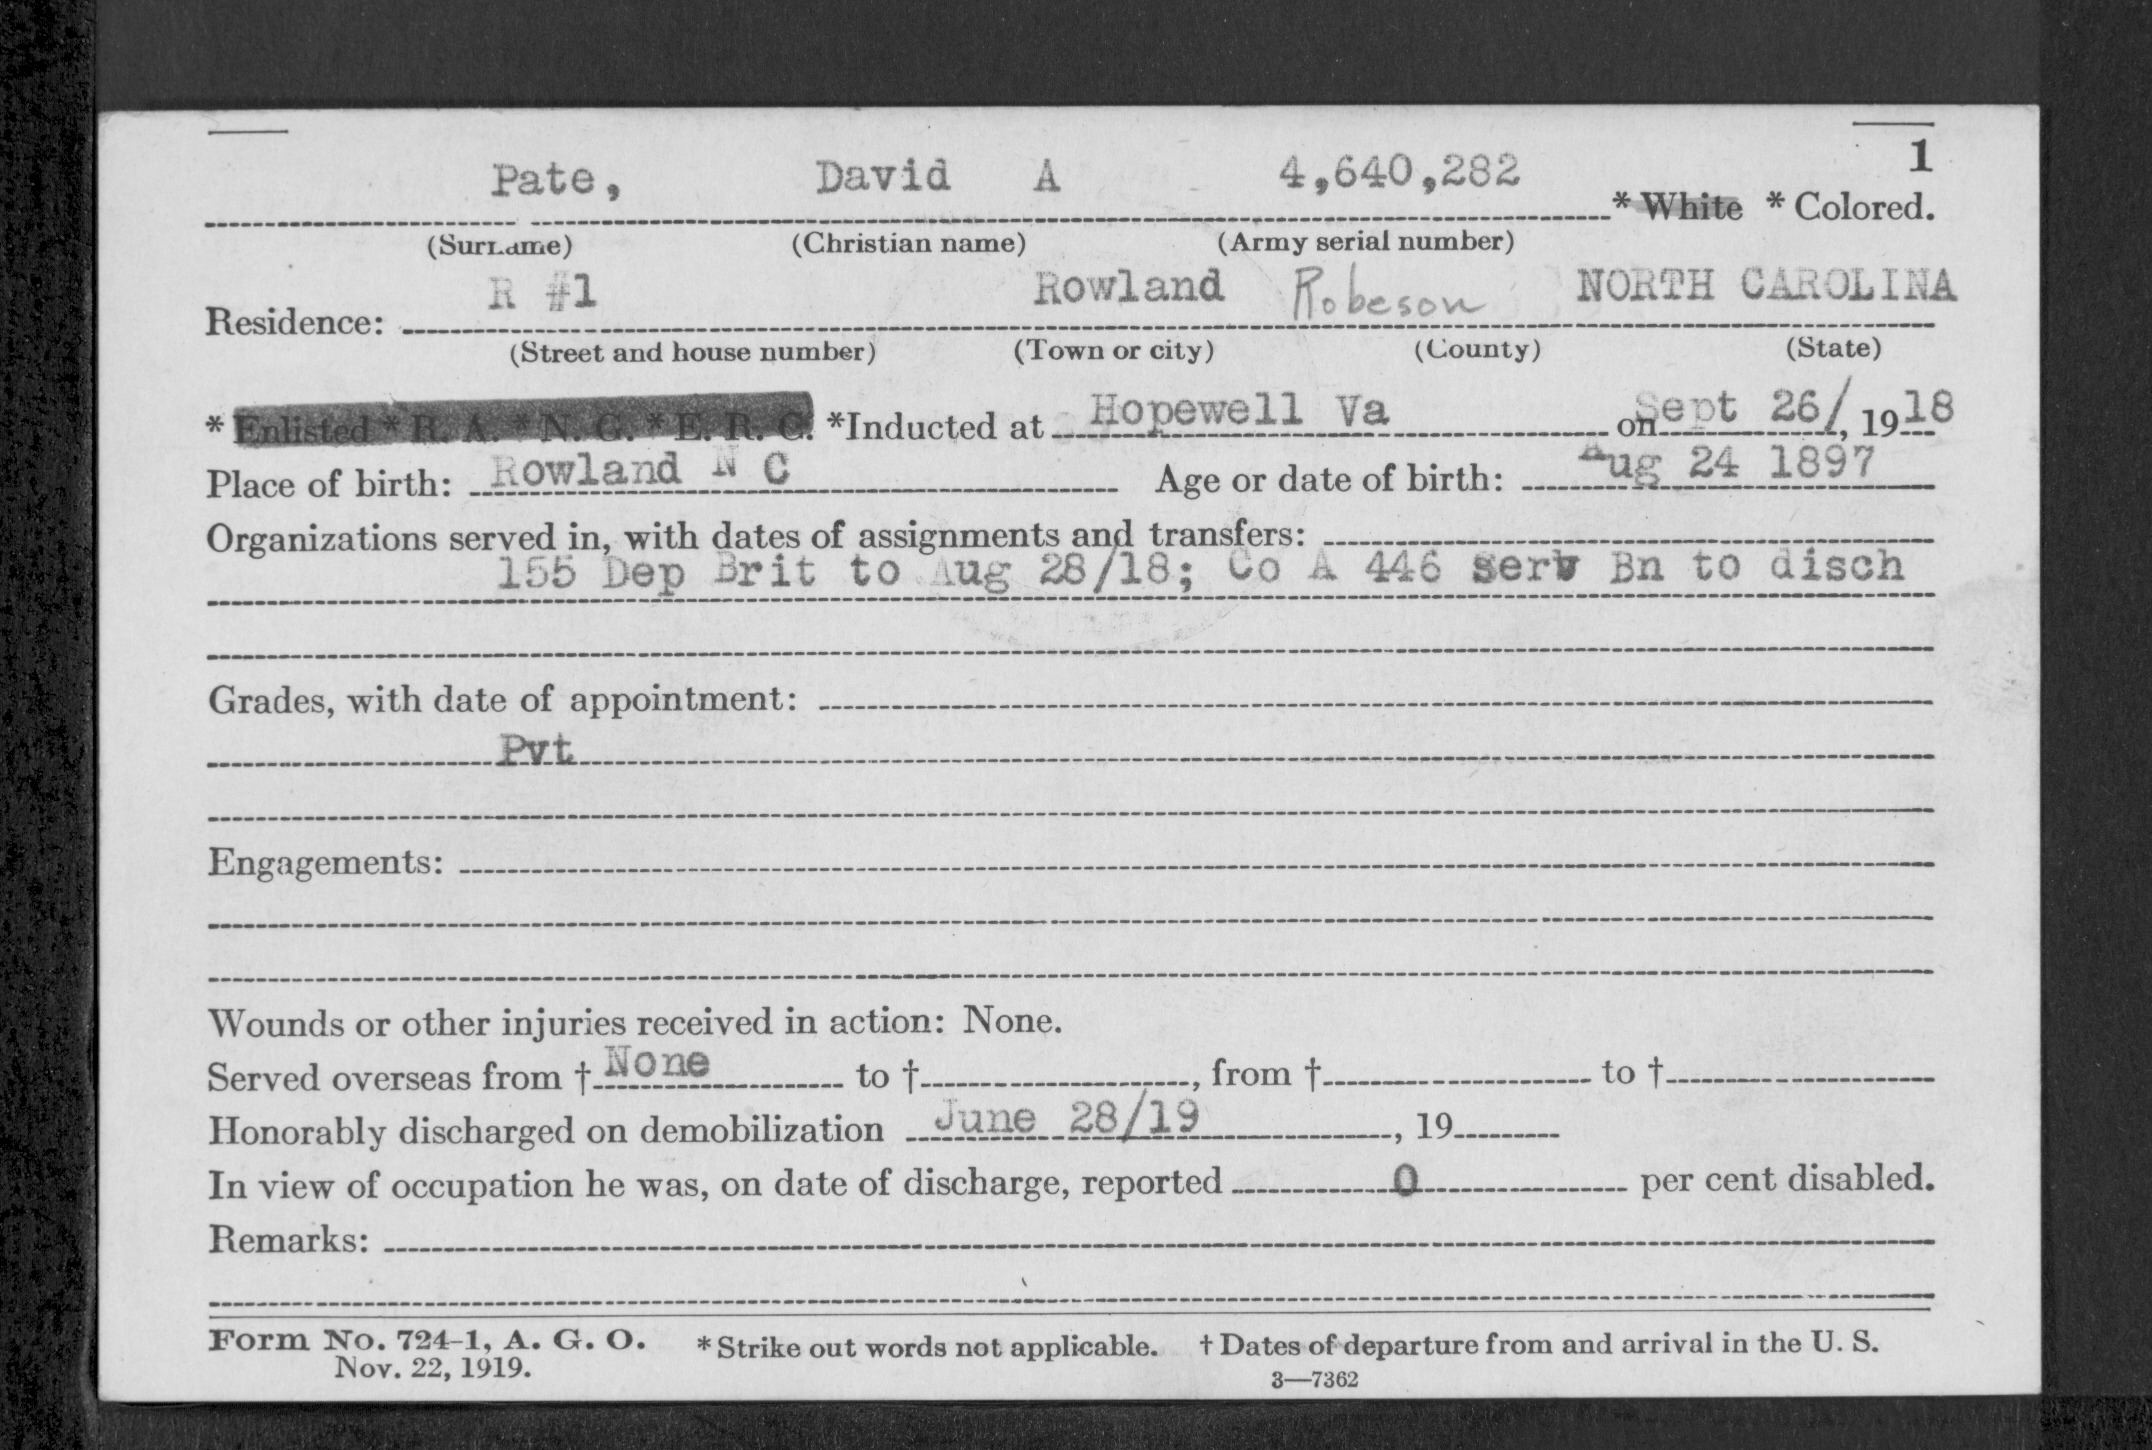 1
Pate, David A 4,640,282 * White * Colored.
(Surname) (Christian name) (Army serial number)
R #1 Rowland Robeson NORTH CAROLINA
Residence:
(Street and house number) (Town or city) (County) (State)
* Enlisted * R. A. * N. G. * E. R. C. *Inducted at Hopewell Va on Sept 26/, 1918
Place of birth: Rowland N C Age or date of birth: Aug 24 1897
Organizations served in, with dates of assignments and transfers:
155 Dep Brit to Aug 28/18; Co A 446 Serv Bn to disch
Grades, with date of appointment:
Pvt
Engagements:
Wounds or other injuries received in action: None.
Served overseas from † None to †, from † to †
Honorably discharged on demobilization June 28/19, 19
In view of occupation he was, on date of discharge, reported 0 per cent disabled.
Remarks:
Form No. 724-1, A. G. O. * Strike out words not applicable. † Dates of departure from and arrival in the U. S.
Nov. 22, 1919. 3—7362